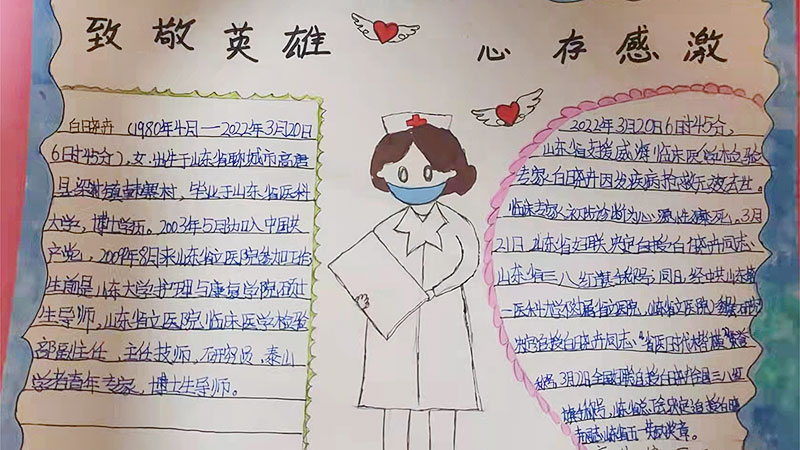 致敬英雄 心存感激
白晓卉（1980年4月—2022年3月20日
6日时45分），女，出生于山东省聊城市高唐
县梁村镇 村，毕业于山东省医科
大学，博士学历。2003年5月加入中国共
产党，2009年8月来山东省立医院参加工作
生前是山东大学护理与康复学院硕士
生导师，山东省立医院临床医学检验
部副主任，主任技师，研究员，泰山
学者青年专家，博士生导师。
2022年3月20日6时45分，
山东省支援威海临床医学检验
专家白晓卉因发疾病抢救无效去世。
临床专家初步诊断为心源性猝死。3月
21日，山东省妇联决定追授白晓卉同志
山东省三八红旗手称号；同日，经中共山东第
一医科大学附属省立医院（山东省立医院）委 研究
决定追授白晓卉同志"省医时代楷模"荣誉
称号，3月2日全国妇联追授白晓卉全国三八红
旗手称号，山东省总工会决定追授白晓
卉同志山东省五一劳动奖章。